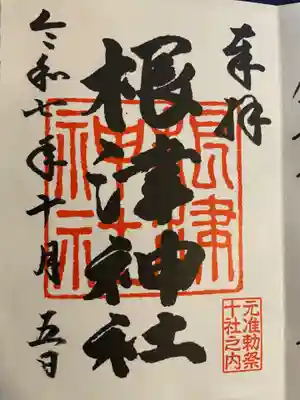 奉拝
根津神社
令和七年十月五日
根津神社
元准勅祭
十社之内